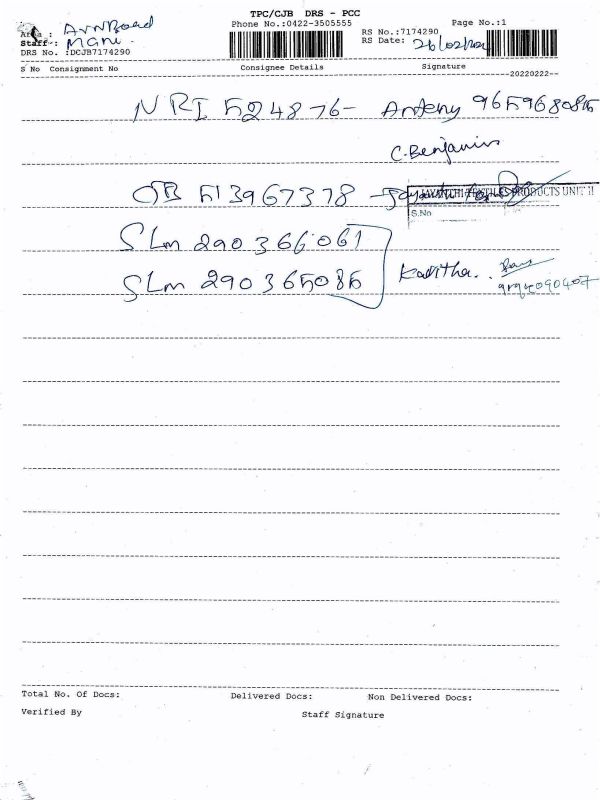 TPC/CJB DRS - PCC
Phone No.:0422-3505555
Page No.:1
RS No.:7174290
RS Date: 26/02/202
Area : AvnRoad
Staff : Mani
DRS No. :DCJB7174290
S No Consignment No Consignee Details Signature
--20220222--
NRI 524876- Antony 9659680815
C. Benjamin
JAYANTHI TEXTILES PRODUCTS UNIT II
513967378
S.No
SLm 290366061
SLm 290365085 Kavitha.
Total No. Of Docs: Delivered Docs: Non Delivered Docs:
Verified By Staff Signature